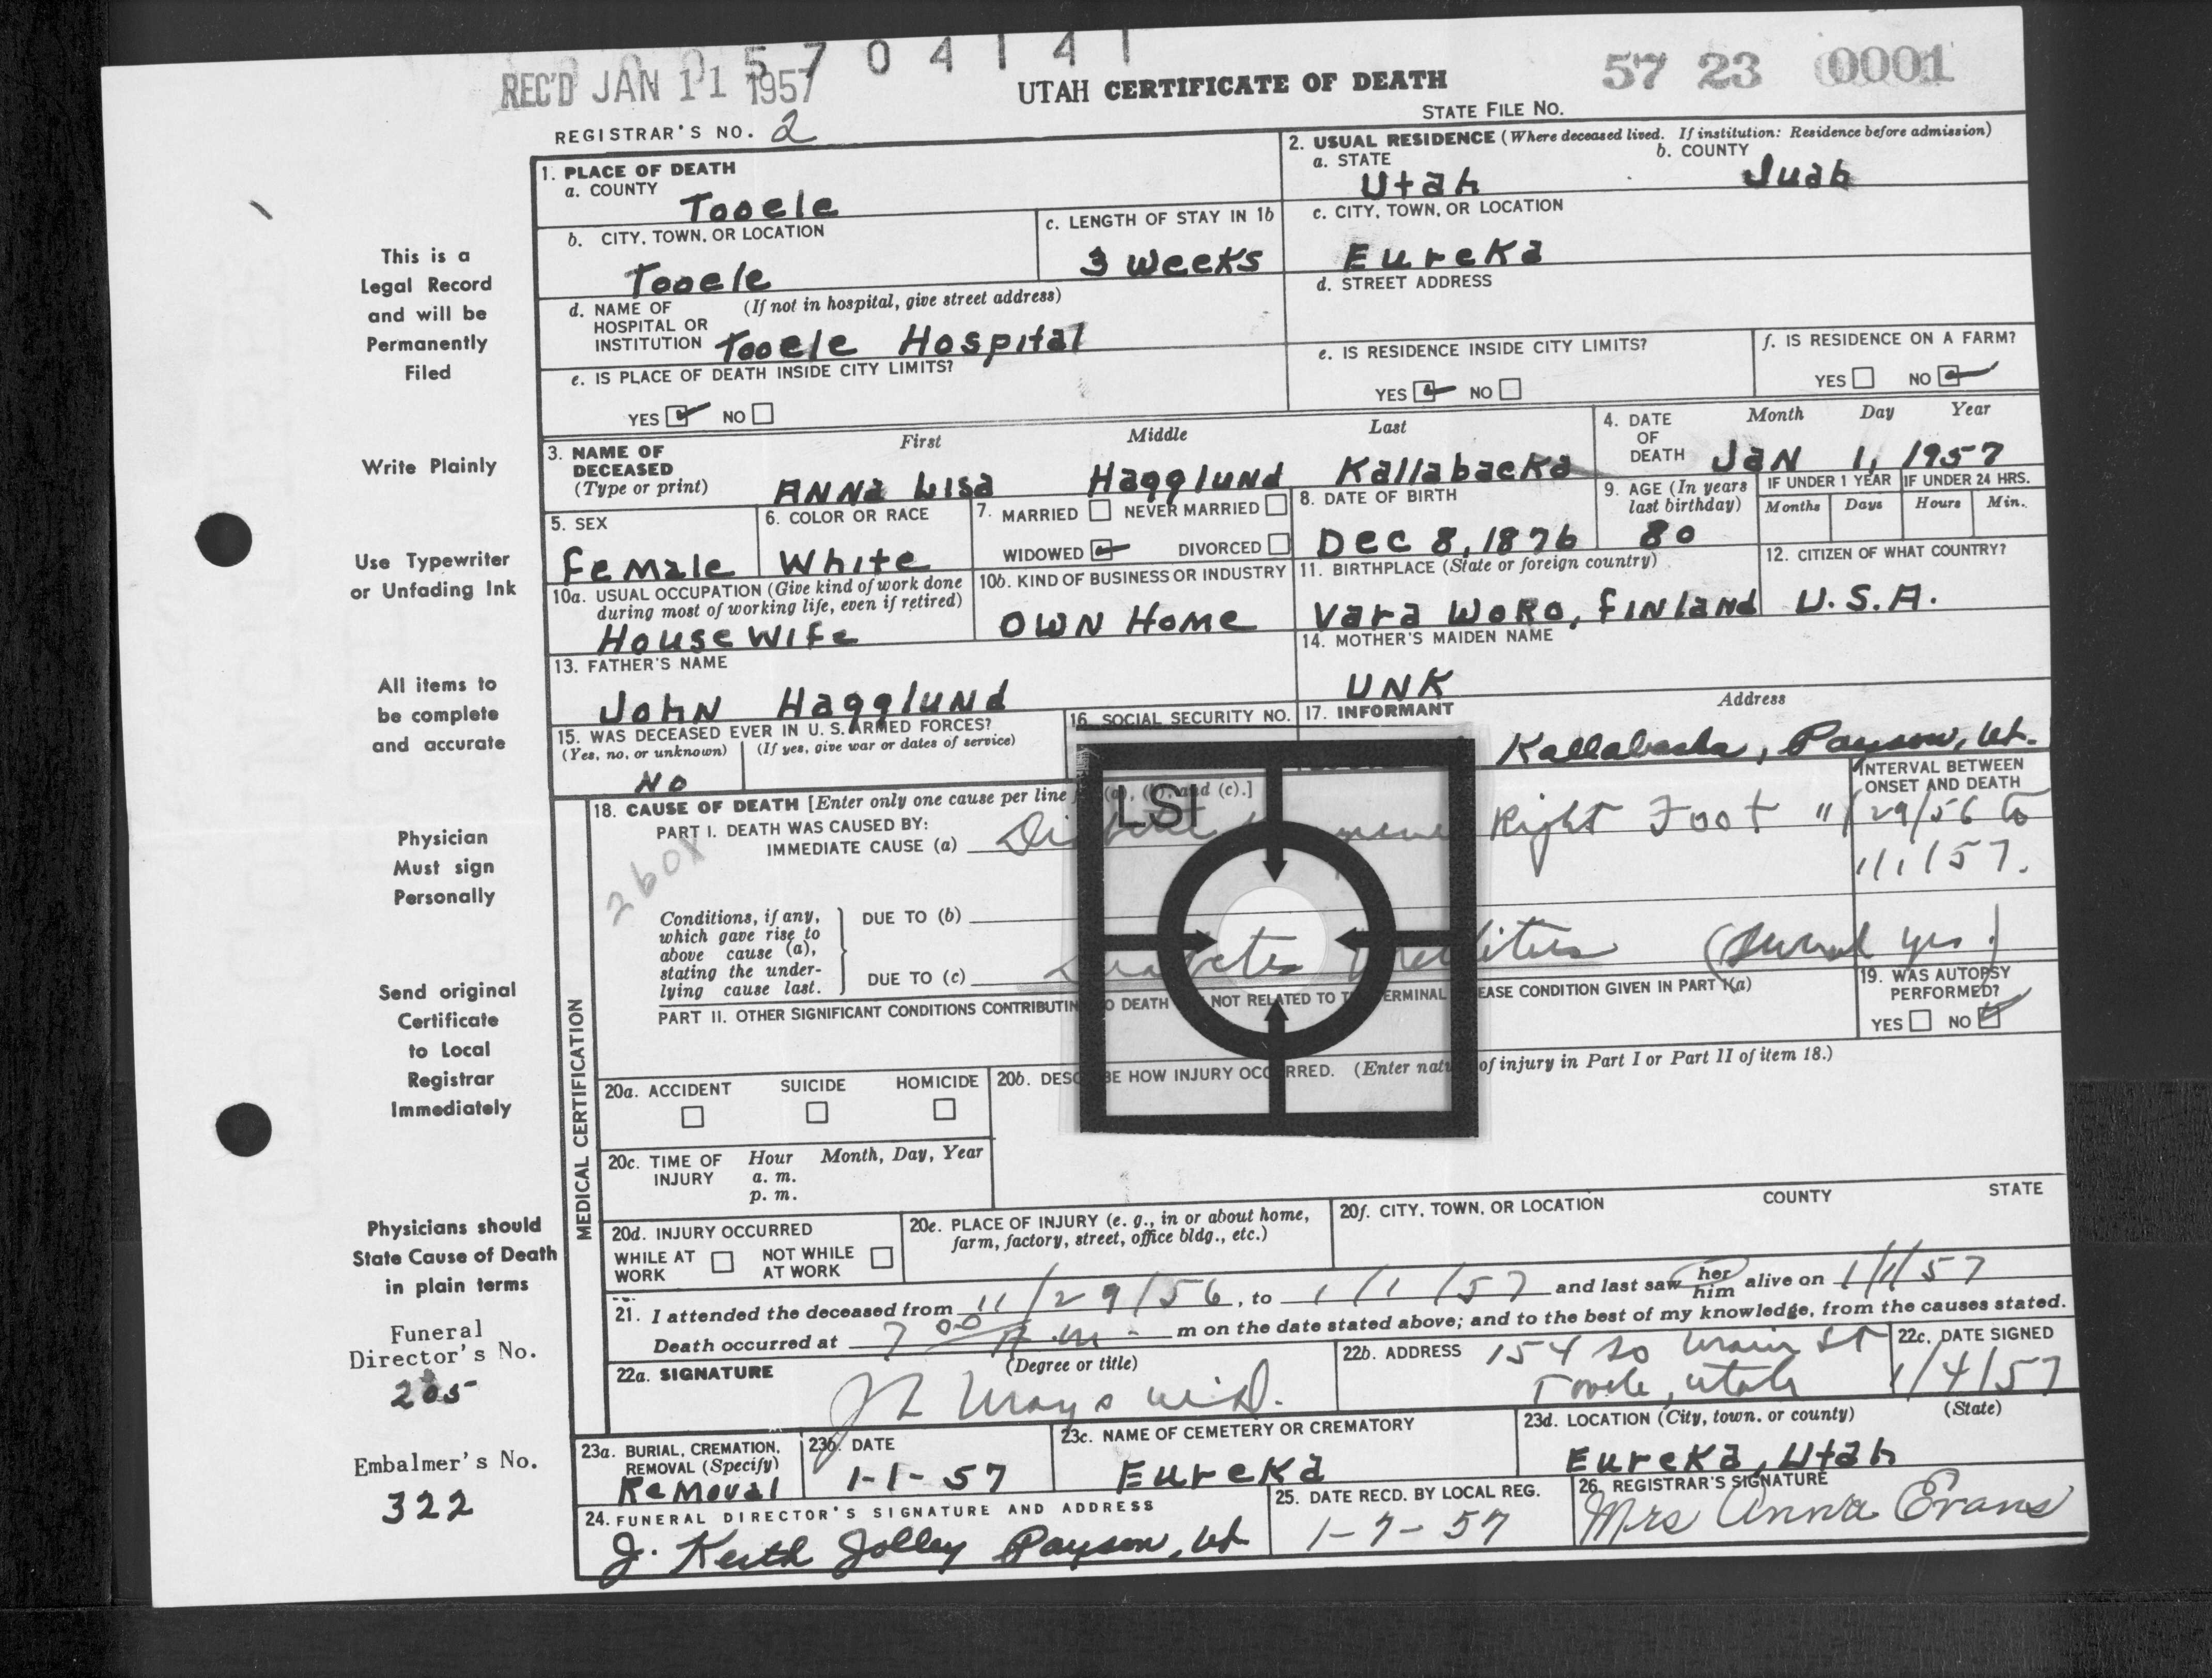 REC'D JAN 11 1957
5704141
57 23 0001
UTAH CERTIFICATE OF DEATH
STATE FILE NO.
REGISTRAR'S NO. 2
This is a
Legal Record
and will be
Permanently
Filed
Write Plainly
Use Typewriter
or Unfading Ink
All items to
be complete
and accurate
Physician
Must sign
Personally
Send original
Certificate
to Local
Registrar
Immediately
Physicians should
State Cause of Death
in plain terms
Funeral
Director's No.
205
Embalmer's No.
322
1. PLACE OF DEATH
a. COUNTY
Tooele
b. CITY, TOWN, OR LOCATION
Tooele
c. LENGTH OF STAY IN 1b
3 weeks
d. NAME OF (If not in hospital, give street address)
HOSPITAL OR
INSTITUTION Tooele Hospital
e. IS PLACE OF DEATH INSIDE CITY LIMITS?
YES NO
2. USUAL RESIDENCE (Where deceased lived. If institution: Residence before admission)
a. STATE
Utah
b. COUNTY
Juab
c. CITY, TOWN, OR LOCATION
Eureka
d. STREET ADDRESS
e. IS RESIDENCE INSIDE CITY LIMITS?
YES NO
f. IS RESIDENCE ON A FARM?
YES NO
3. NAME OF
DECEASED
(Type or print)
First Middle Last
ANNa Lisa Hagglund Kallabacka
4. DATE
OF
DEATH
Month Day Year
JaN 1, 1957
5. SEX
Female
6. COLOR OR RACE
White
7. MARRIED NEVER MARRIED
WIDOWED DIVORCED
8. DATE OF BIRTH
Dec 8, 1876
9. AGE (In years
last birthday)
80
IF UNDER 1 YEAR IF UNDER 24 HRS.
Months Days Hours Min.
10a. USUAL OCCUPATION (Give kind of work done
during most of working life, even if retired)
House Wife
10b. KIND OF BUSINESS OR INDUSTRY
OWN Home
11. BIRTHPLACE (State or foreign country)
Vara Woro, FINland
12. CITIZEN OF WHAT COUNTRY?
U.S.A.
13. FATHER'S NAME
John Hagglund
14. MOTHER'S MAIDEN NAME
UNK
15. WAS DECEASED EVER IN U. S. ARMED FORCES?
(Yes, no, or unknown) (If yes, give war or dates of service)
No
16. SOCIAL SECURITY NO.
17. INFORMANT Address
Kallabacka, Payson, Ut.
LSI
18. CAUSE OF DEATH [Enter only one cause per line (a), (b), and (c).]
PART I. DEATH WAS CAUSED BY:
IMMEDIATE CAUSE (a) Right Foot
INTERVAL BETWEEN
ONSET AND DEATH
11/29/56 to
1/1/57.
260X
Conditions, if any,
which gave rise to
above cause (a),
stating the under-
lying cause last.
DUE TO (b)
DUE TO (c) Diabetes Mellitus (Several yrs.)
PART II. OTHER SIGNIFICANT CONDITIONS CONTRIBUTING TO DEATH NOT RELATED TO TERMINAL DISEASE CONDITION GIVEN IN PART I(a)
19. WAS AUTOPSY
PERFORMED?
YES NO
MEDICAL CERTIFICATION
20a. ACCIDENT SUICIDE HOMICIDE
20b. DESCRIBE HOW INJURY OCCURRED. (Enter nature of injury in Part I or Part II of item 18.)
20c. TIME OF
INJURY
Hour Month, Day, Year
a. m.
p. m.
20d. INJURY OCCURRED
WHILE AT
WORK
NOT WHILE
AT WORK
20e. PLACE OF INJURY (e. g., in or about home,
farm, factory, street, office bldg., etc.)
20f. CITY, TOWN, OR LOCATION COUNTY STATE
21. I attended the deceased from 11/29/56, to 1/1/57 and last saw her him alive on 1/1/57
Death occurred at 7 00 A.m- m on the date stated above; and to the best of my knowledge, from the causes stated.
22a. SIGNATURE (Degree or title)
Mays M.D.
22b. ADDRESS 154 So Main St
Tooele, Utah
22c. DATE SIGNED
1/4/57
23a. BURIAL, CREMATION,
REMOVAL (Specify)
Removal
23b. DATE
1-1-57
23c. NAME OF CEMETERY OR CREMATORY
Eureka
23d. LOCATION (City, town, or county) (State)
Eureka, Utah
24. FUNERAL DIRECTOR'S SIGNATURE AND ADDRESS
J. Keith Jolley Payson, Ut
25. DATE RECD. BY LOCAL REG.
1-7-57
26. REGISTRAR'S SIGNATURE
Mrs Anna Evans